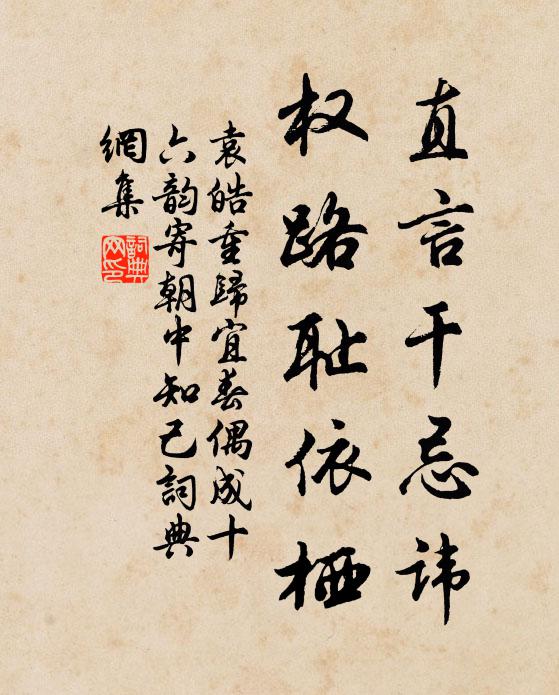 直言干忌讳
权路耻依栖
袁皓重歸宜春偶成十
六韵寄朝中知己詞典
網集
詞典
网印